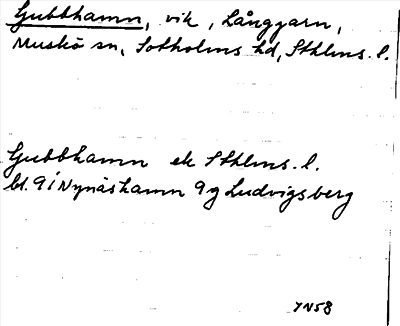 Gubbhamn, vik, Långgarn,
Muskö sn, Sotholms hd, Sthlms. l.
Gubbhamn ek Sthlms. l.
bl. 9 i Nynäshamn 9 g Ludvigsberg
JN58